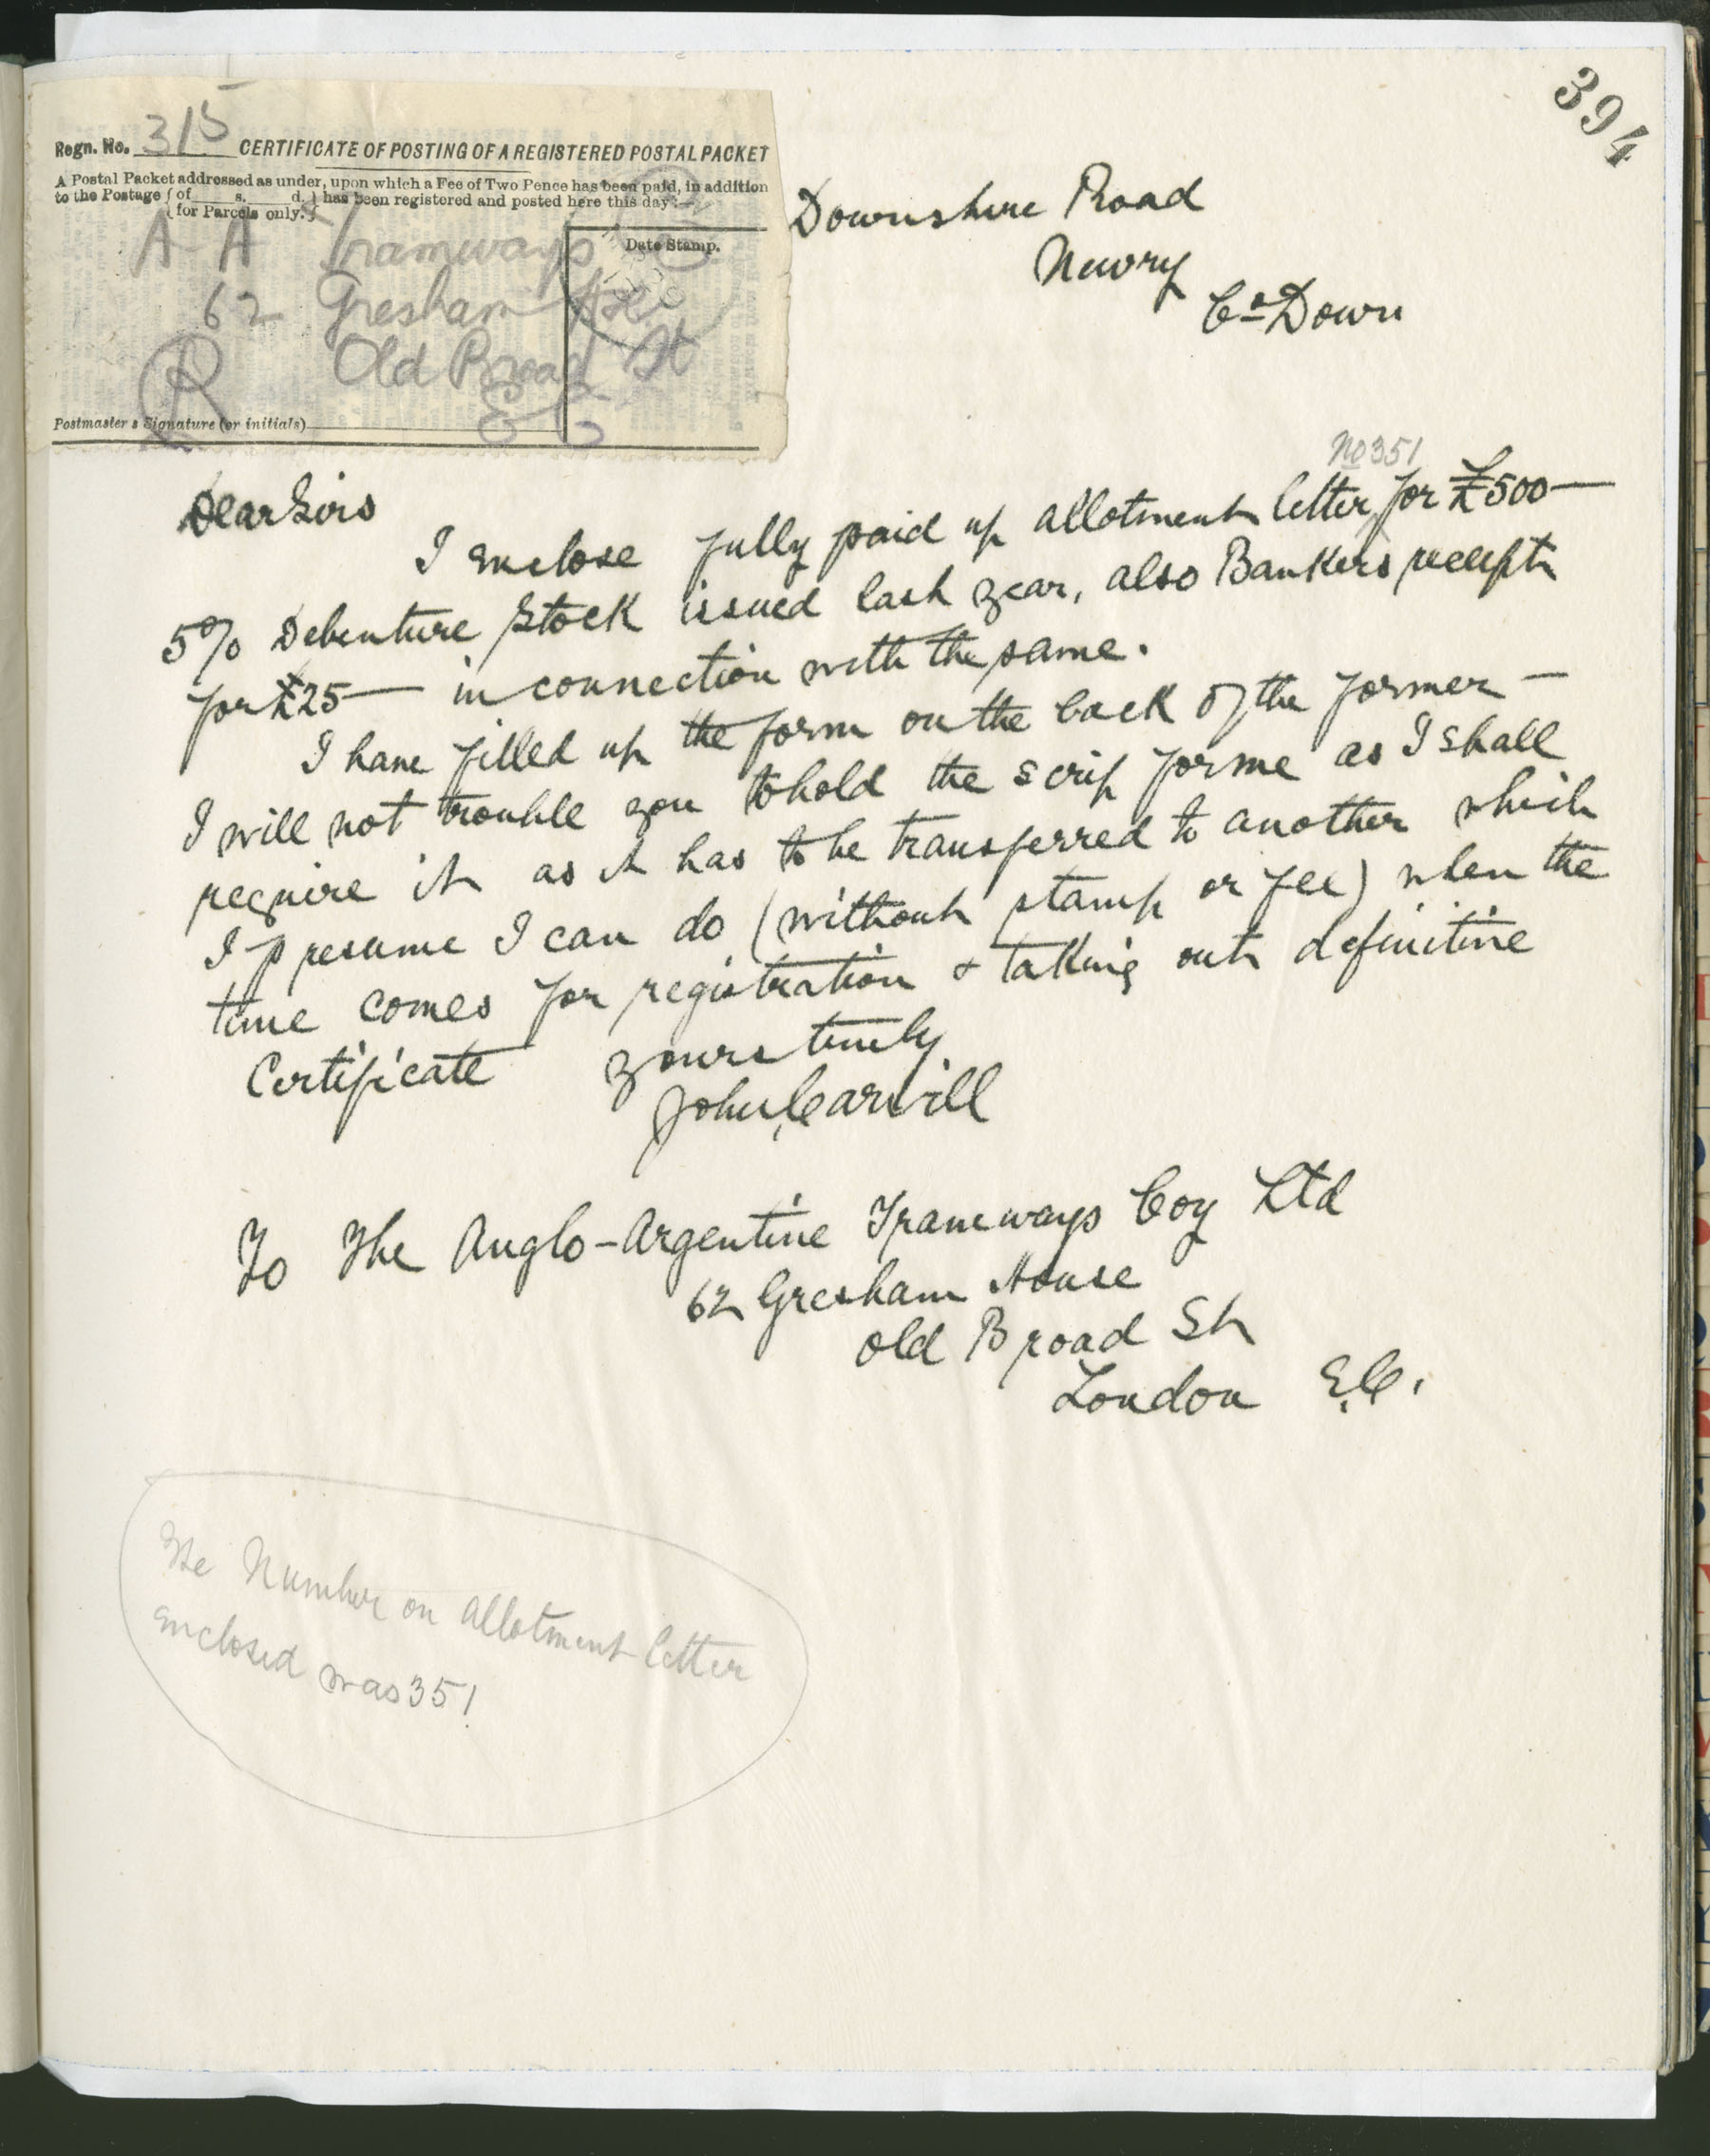 394
Regn. No. 315 CERTIFICATE OF POSTING OF A REGISTERED POSTAL PACKET
A Postal Packet addressed as under, upon which a Fee of Two Pence has been paid, in addition
to the Postage { of ____ s. ____ d. } has been registered and posted here this day:—
{ for Parcels only. }
Date Stamp.
A A Tramways
62 Gresham Hse
Old Broad St
E C
R
Postmaster's Signature (or initials)
Downshire Road
Newry
Co Down
Dear Sirs
No 351
I enclose fully paid up allotment letter for £500—
5% Debenture Stock issued last year, also Bankers receipt
for £25— in connection with the same.
I have filled up the form on the back of the former —
I will not trouble you to hold the scrip for me as I shall
require it as it has to be transferred to another which
I presume I can do (without stamp or fee) when the
time comes for registration & taking out definitive
Certificate yours truly
John Carvill
To The Anglo-Argentine Tramways Coy Ltd
62 Gresham House
Old Broad St
London E.C.
The Number on allotment letter
enclosed was 351